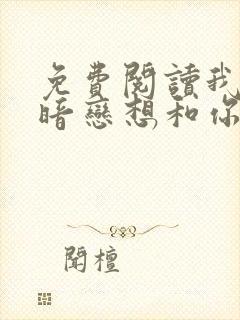 免費閱讀我
暗戀想和你
聞檀